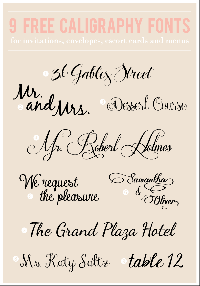 9 FREE CALIGRAPHY FONTS
for invitations, envelopes, escort cards and menus
36 Gables Street
Mr. and Mrs.
Dessert Course
Mr. Robert Holmes
We request
the pleasure
Samantha
&
Oliver
The Grand Plaza Hotel
Ms. Katy Saltz
table 12